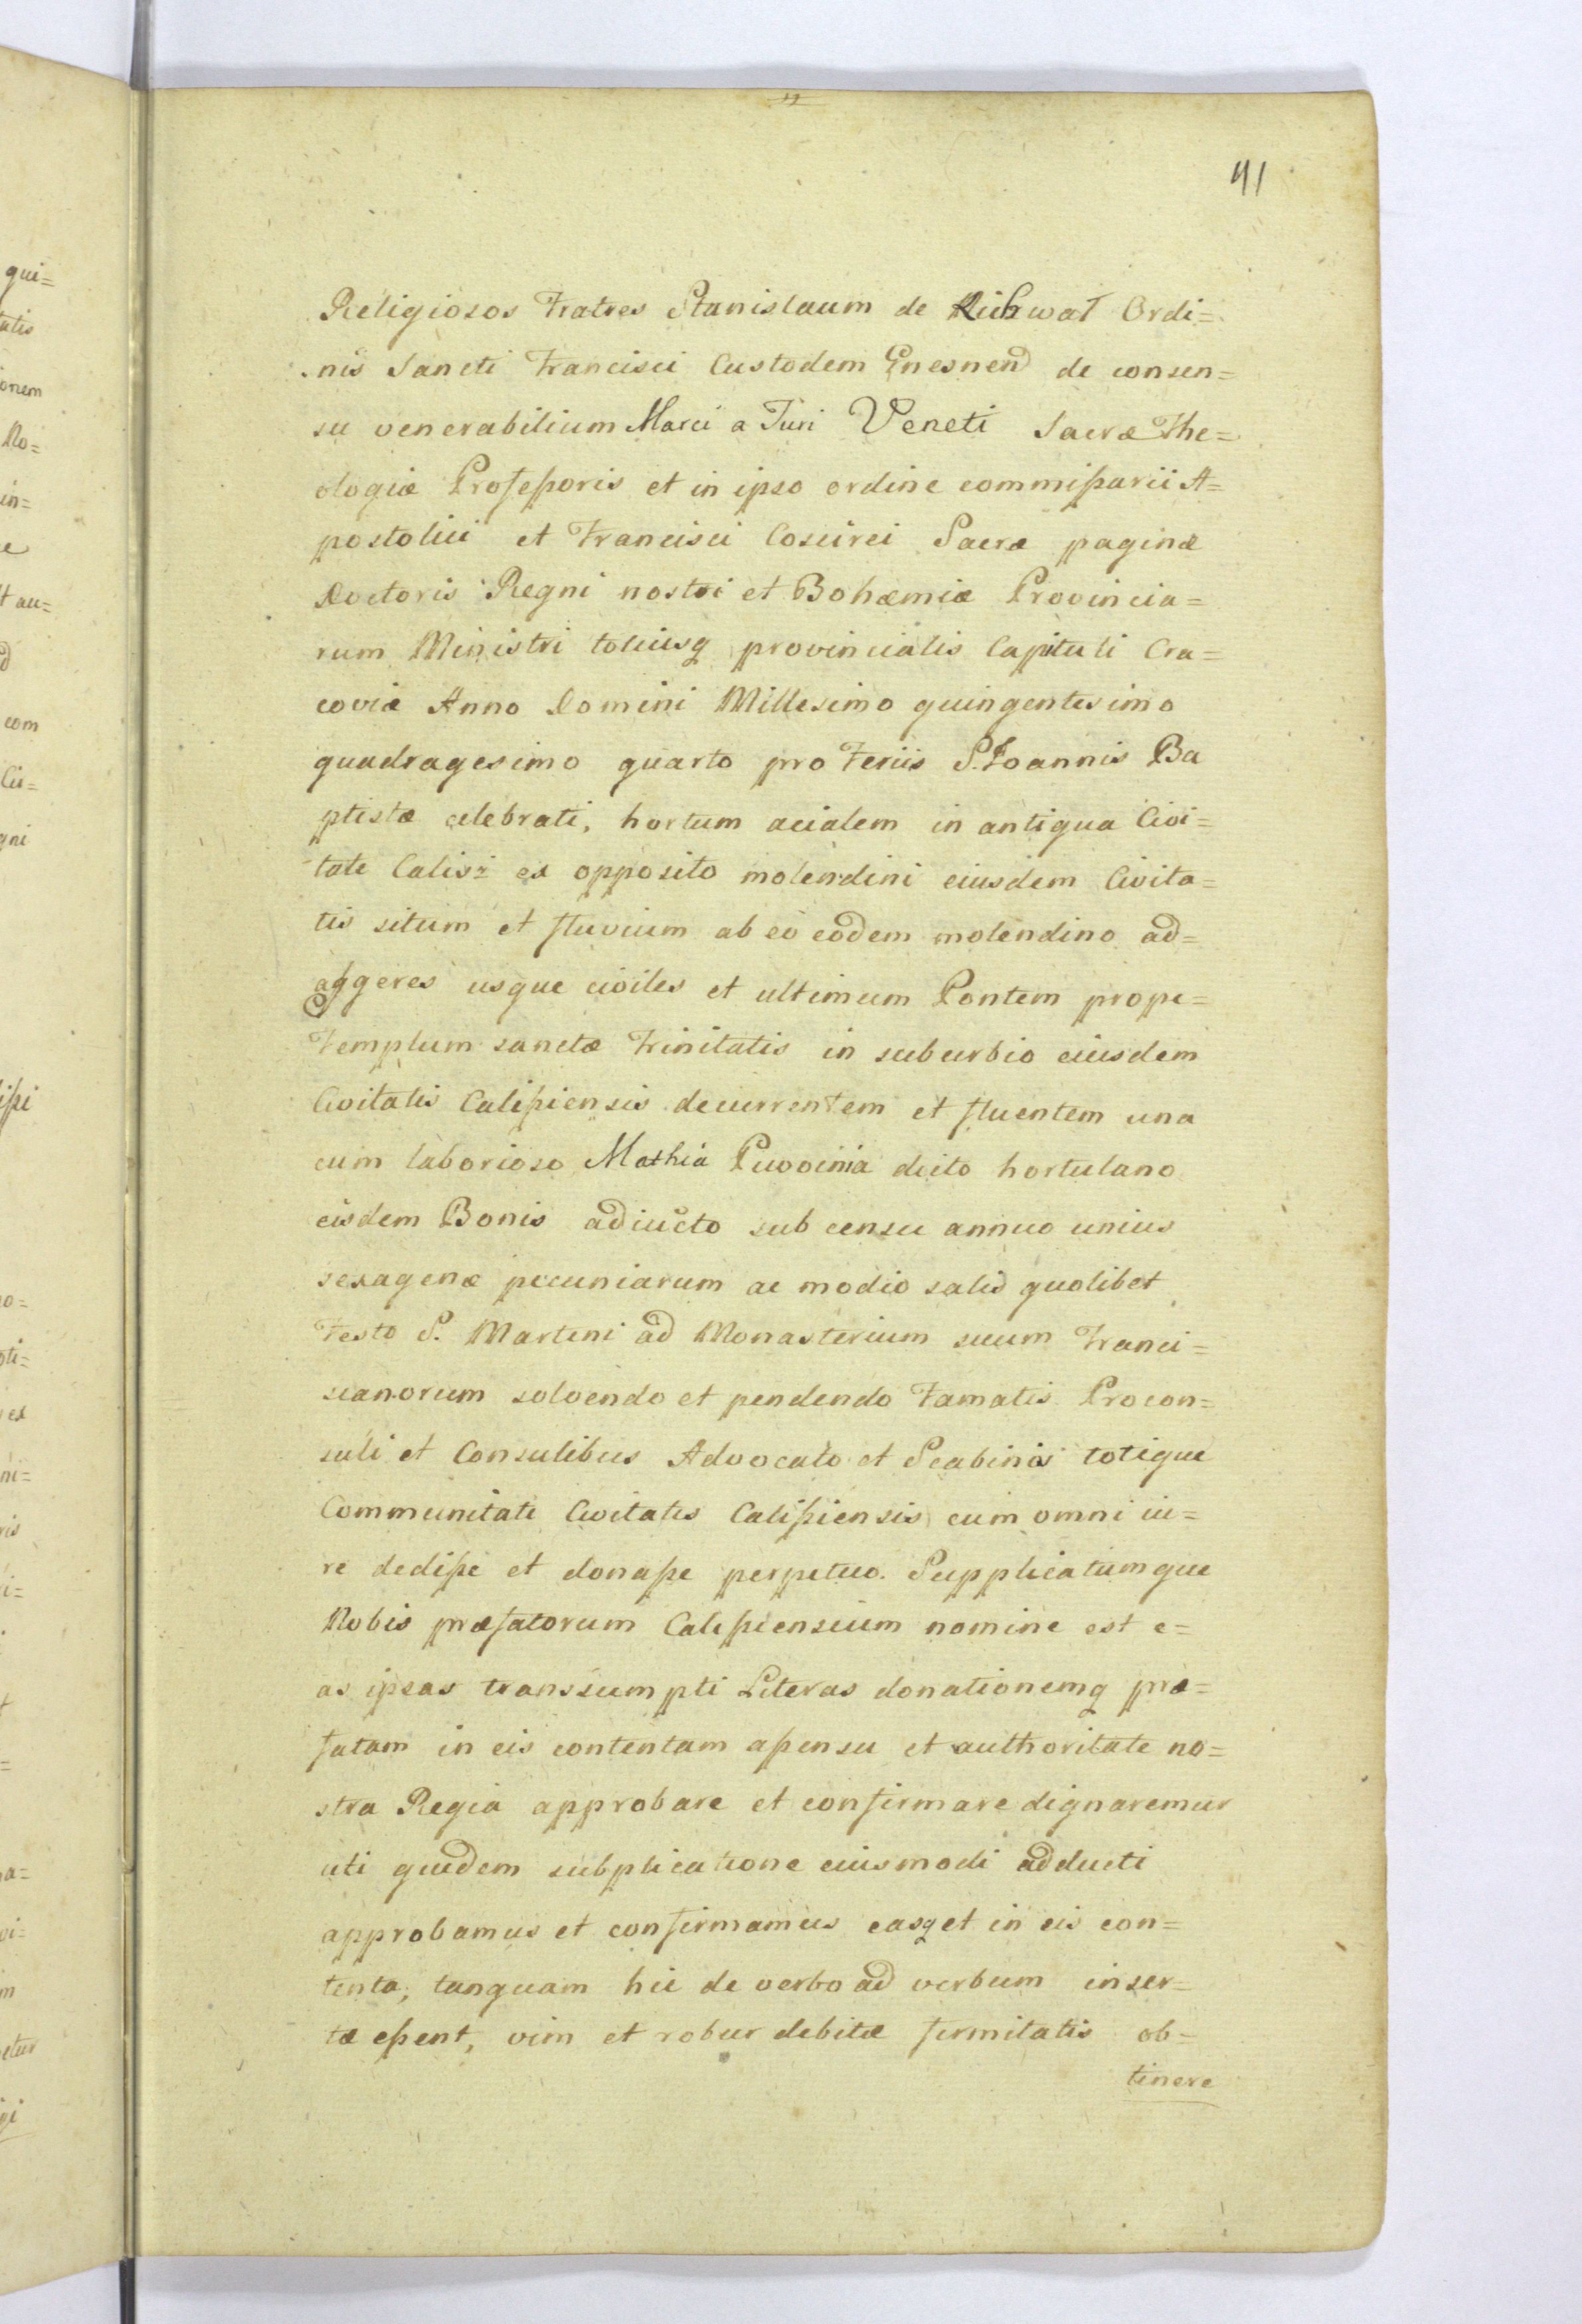 41
Religiosos Fratres Stanislaum de Richwał Ordi=
nis Sancti Francisci Custodem Gnesnen̄ de consen=
su venerabilium Marci a Turi Veneti Sacræ The=
ologiæ Profeßoris et in ipso ordine commißarii A=
postolici et Francisci Coscirei Sacræ paginæ
Doctoris Regni nostri et Bohæmiæ Provincia=
rum Ministri totiusq provincialis Capituli Cra=
coviæ Anno Domini Millesimo quingentesimo
quadragesimo quarto pro Feriis S. Joannis Ba
ptistæ celebrati, hortum acialem in antiqua Civi=
tate Calisz ex opposito molendini eiusdem Civita=
tis situm et fluvium ab eo eodem molendino ad=
aggeres usque civiles et ultimum Pontem prope=
Templum sanctæ Trinitatis in suburbio eiusdem
Civitatis Calißiensis decurrentem et fluentem una
cum laborioso Mathia Puvoinia dicto hortulano
eisdem Bonis adiucto sub censu annuo unius
sexagenæ pecuniarum ac modio salis quolibet
Festo S. Martini ad Monasterium suum Franci=
scanorum solvendo et pendendo Famatis Procon=
suli et Consulibus Advocato et Scabinis totique
Communitati Civitatis Calißiensis cum omni iu=
re dediße et donaße perpetuo. Supplicatumque
Nobis præfatorum Calißiensium nomine est e=
as ipsas transsumpti Literas donationemq præ=
fatam in eis contentam aßensu et authoritate no=
stra Regia approbare et confirmare dignaremur
uti quidem subplicatione eiusmodi adducti
approbamus et confirmamus easq et in eis con=
tenta, tanquam hic de verbo ad verbum inser=
tæ eßent, vim et robur debitæ firmitatis ob=
tinere
qui=
tatis
onem
No=
in=
e
t au=
d
com
Ci=
gni
ißi
o=
oti=
ex
ni=
ris
i=
a=
vi=
m
etur
gi